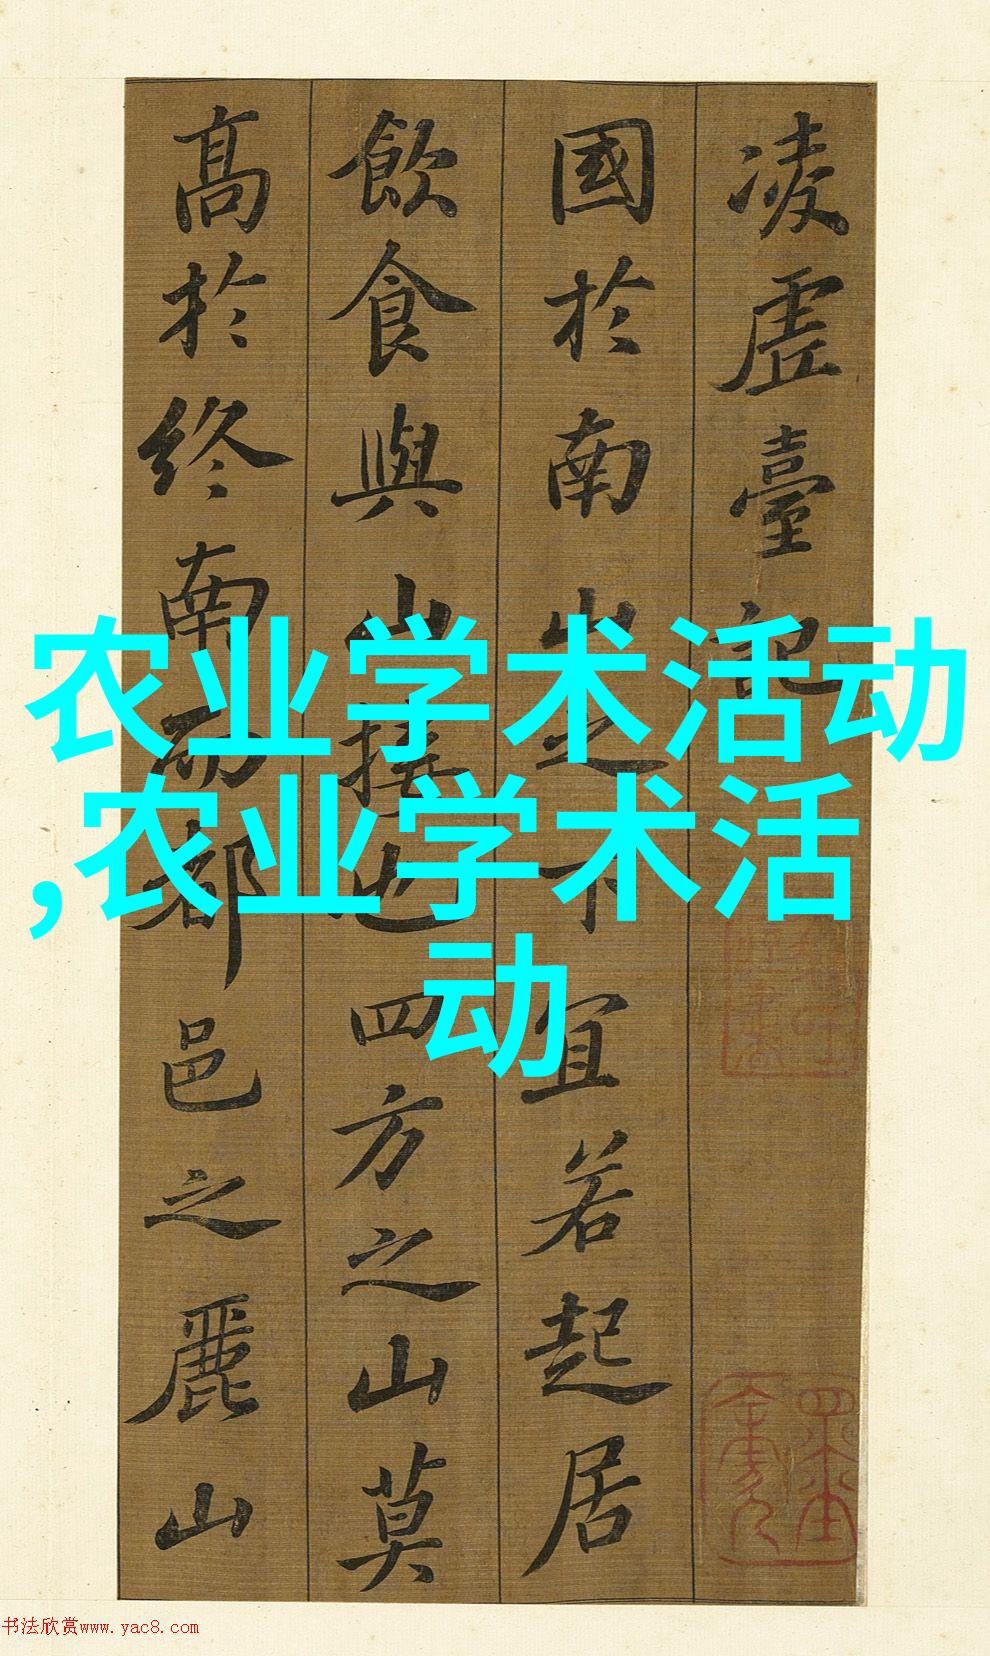 凌虛臺記
國於南山之下宜若起居
飲食與山接也四方之山莫
高於終南而都邑之麗山
农业学术活动
,农业学术活
动
书法欣赏www.yac8.com